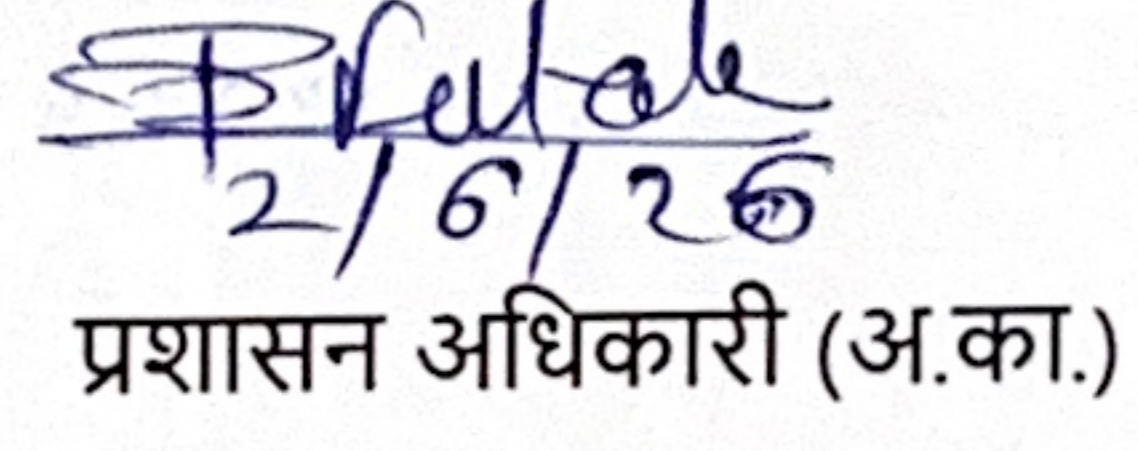 2/6/26
प्रशासन अधिकारी (अ.का.)